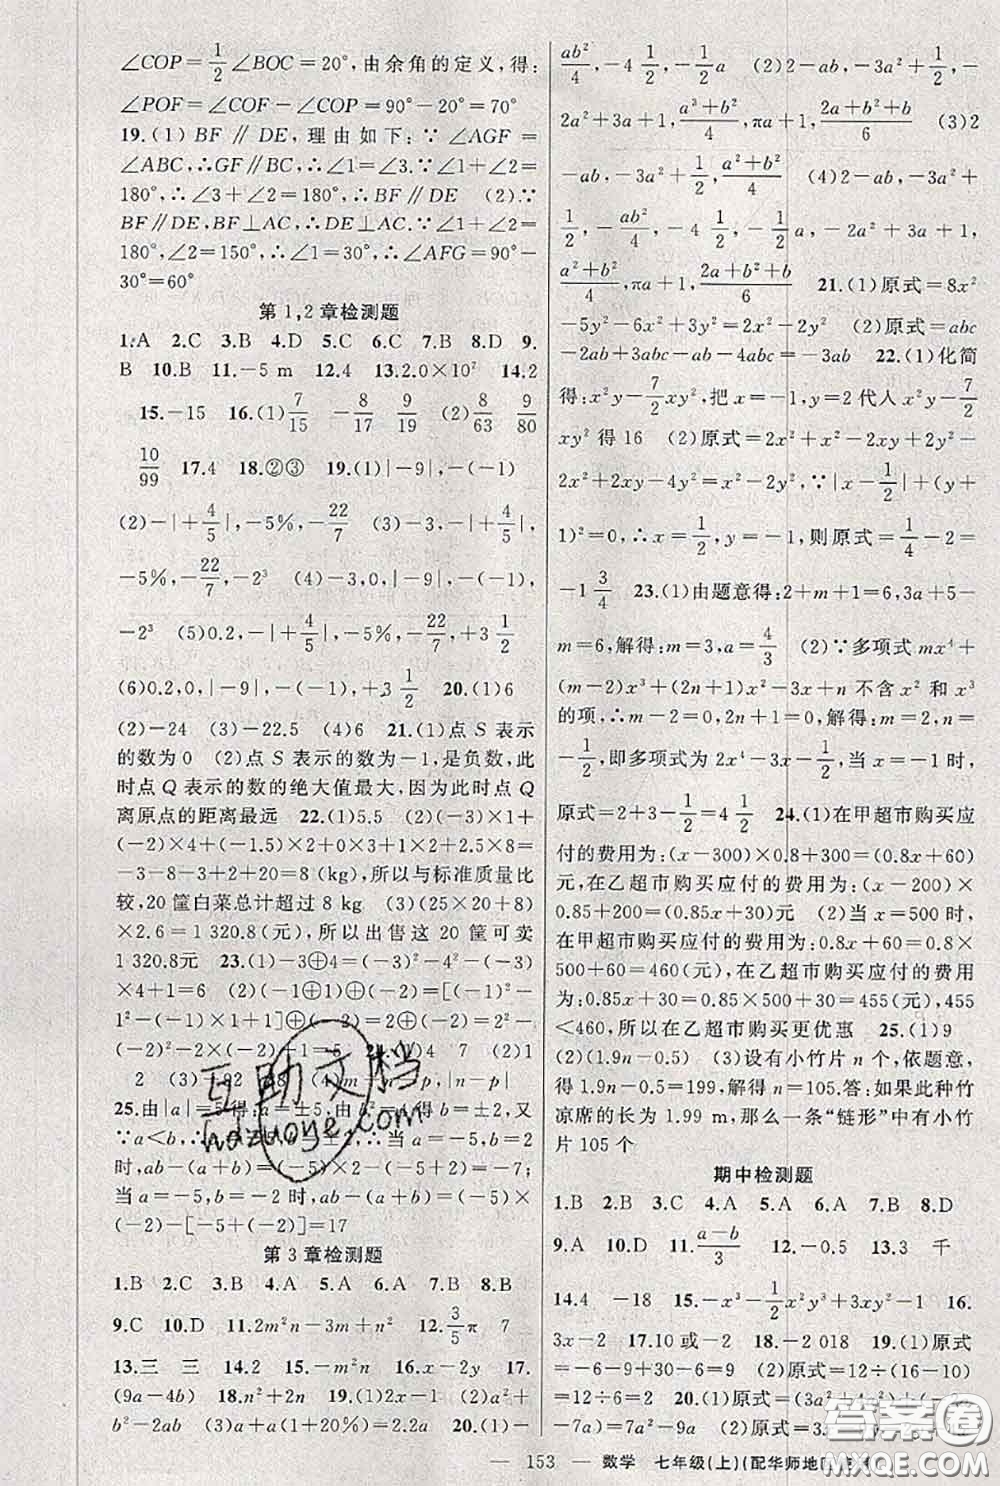 ∠COP=1/2∠BOC=20°,由余角的定义,得:
∠POF=∠COF-∠COP=90°-20°=70°
19.(1)BF∥DE,理由如下:∵∠AGF=
∠ABC,∴GF∥BC,∴∠1=∠3.∵∠1+∠2=
180°,∴∠3+∠2=180°,∴BF∥DE (2)∵
BF∥DE,BF⊥AC,∴DE⊥AC.∵∠1+∠2=
180°,∠2=150°,∴∠1=30°,∴∠AFG=90°-
30°=60°
第1,2章检测题
1.A 2.C 3.B 4.D 5.C 6.C 7.B 8.D 9.
B 10.B 11.-5 m 12.4 13.2.0×10² 14.2
15.-15 16.(1)7/15 -8/17 9/19 (2)8/63 9/80
10/99 17.4 18.②③ 19.(1)|-9|,-(-1)
(2)-|+4/5|,-5%,-22/7 (3)-3,-|+4/5|,
-5%,-22/7,-2³ (4)-3,0,|-9|,-(-1),
-2³ (5)0.2,-|+4/5|,-5%,-22/7,+3 1/2
(6)0.2,0,|-9|,-(-1),+3 1/2 20.(1)6
(2)-24 (3)-22.5 (4)6 21.(1)点S表示
的数为0 (2)点S表示的数为-1,是负数,此
时点Q表示的数的绝大值最大,因此此时点Q
离原点的距离最远 22.(1)5.5 (2)(-3)×1+
(-2)×4+(-1.5)×2+0×3+1×2+2.5×8=
-3-8-3+2+20=8(kg),所以与标准质量比
较,20筐白菜总计超过8 kg (3)(25×20+8)
×2.6=1 320.8(元),所以出售这20筐可卖
1 320.8元 23.(1)-3⊕4=(-3)²-4²-(-3)
×4+1=6 (2)(-1⊕1)⊕(-2)=[(-1)²-
1²-(-1)×1+1]⊕(-2)=2⊕(-2)=2²-
(-2)²-2×(-2)+1=5 7 (2)1
2 (3)-92 |n-p|
25.由|a|=5得:a=±5,由b²=4得b=±2,又
∵a<b,∴a=-5,b=±2.∴当a=-5,b=2
时,ab-(a+b)=(-5)×2-(-5+2)=-7;
当a=-5,b=-2时,ab-(a+b)=(-5)×
(-2)-[-5+(-2)]=17
第3章检测题
1.B 2.C 3.B 4.A 5.A 6.A 7.B 8.B
9.C 10.D 11.2m²n-3m+n² 12.3/5π 7
13.三 三 14.2 15.-m²n 16.x-2y 17.
(9a-4b) 18.n²+2n 19.(1)2x-1 (2)a²+
b²-2ab (3)a+a(1+20%)=2.2a 20.(1)-
ab²/4,-4 1/2,-1/2a (2)2-ab,-3a²+1/2,-
2a²+3a+1,(a³+b²)/4,πa+1/2,(2a+b²+b)/6 (3)2
-ab,-3a²+1/2,(a²+b²)/4 (4)2-ab,-3a²+
1/2,ab²/4,-4 1/2,-1/2a,-2a²+3a+1,
(a²+b²)/4,πa+1/2,(2a+b²+b)/6 21.(1)原式=8x²
-5y²-6x²+4y²=2x²-y² (2)原式=abc
-2ab+3abc-ab-4abc=-3ab 22.(1)化简
得:x²y-7/2xy²,把x=-1,y=2代人x²y-7/2
xy²得16 (2)原式=2x²+x²-2xy+2y²-
2x²+2xy-4y²=x²-2y²,∵|x-1/2|+(y+
1)²=0,∴x=1/2,y=-1,则原式=1/4-2=
-1 3/4 23.(1)由题意得:2+m+1=6,3a+5-
m=6,解得:m=3,a=4/3 (2)∵多项式mx⁴+
(m-2)x³+(2n+1)x²-3x+n不含x²和x³
的项,∴m-2=0,2n+1=0,解得:m=2,n=
-1/2,即多项式为2x⁴-3x-1/2,当x=-1时,
原式=2+3-1/2=4 1/2 24.(1)在甲超市购买应
付的费用为:(x-300)×0.8+300=(0.8x+60)
元,在乙超市购买应付的费用为:(x-200)×
0.85+200=(0.85x+30)元 (2)当x=500时,
在甲超市购买应付的费用为:0.8x+60=0.8×
500+60=460(元),在乙超市购买应付的费用
为:0.85x+30=0.85×500+30=455(元),455
<460,所以在乙超市购买更优惠 25.(1)9
(2)(1.9n-0.5) (3)设有小竹片n个,依题意,
得1.9n-0.5=199,解得:n=105.答:如果此种竹
凉席的长为1.99 m,那么一条“链形”中有小竹
片105个
期中检测题
1.B 2.B 3.C 4.A 5.A 6.A 7.B 8.D
9.A 10.D 11.(a-b)/3 12.-0.5 13.3 千
14.4 -18 15.-x³-1/2x²y³+3xy²-1 16.
3x-2 17.10或-2 18.-2 018 19.(1)原式
=-6-9+9=-6 (2)原式=12÷(16-10)
=12÷6=2 20.(1)原式=(3a²+4a²)+(-2a
-7a)=7a²-9a (2)原式=
— 153 — 数学 七年级(上)(配华师地
互助文档
hdzuoye.com
答案卷
MXQE.COM